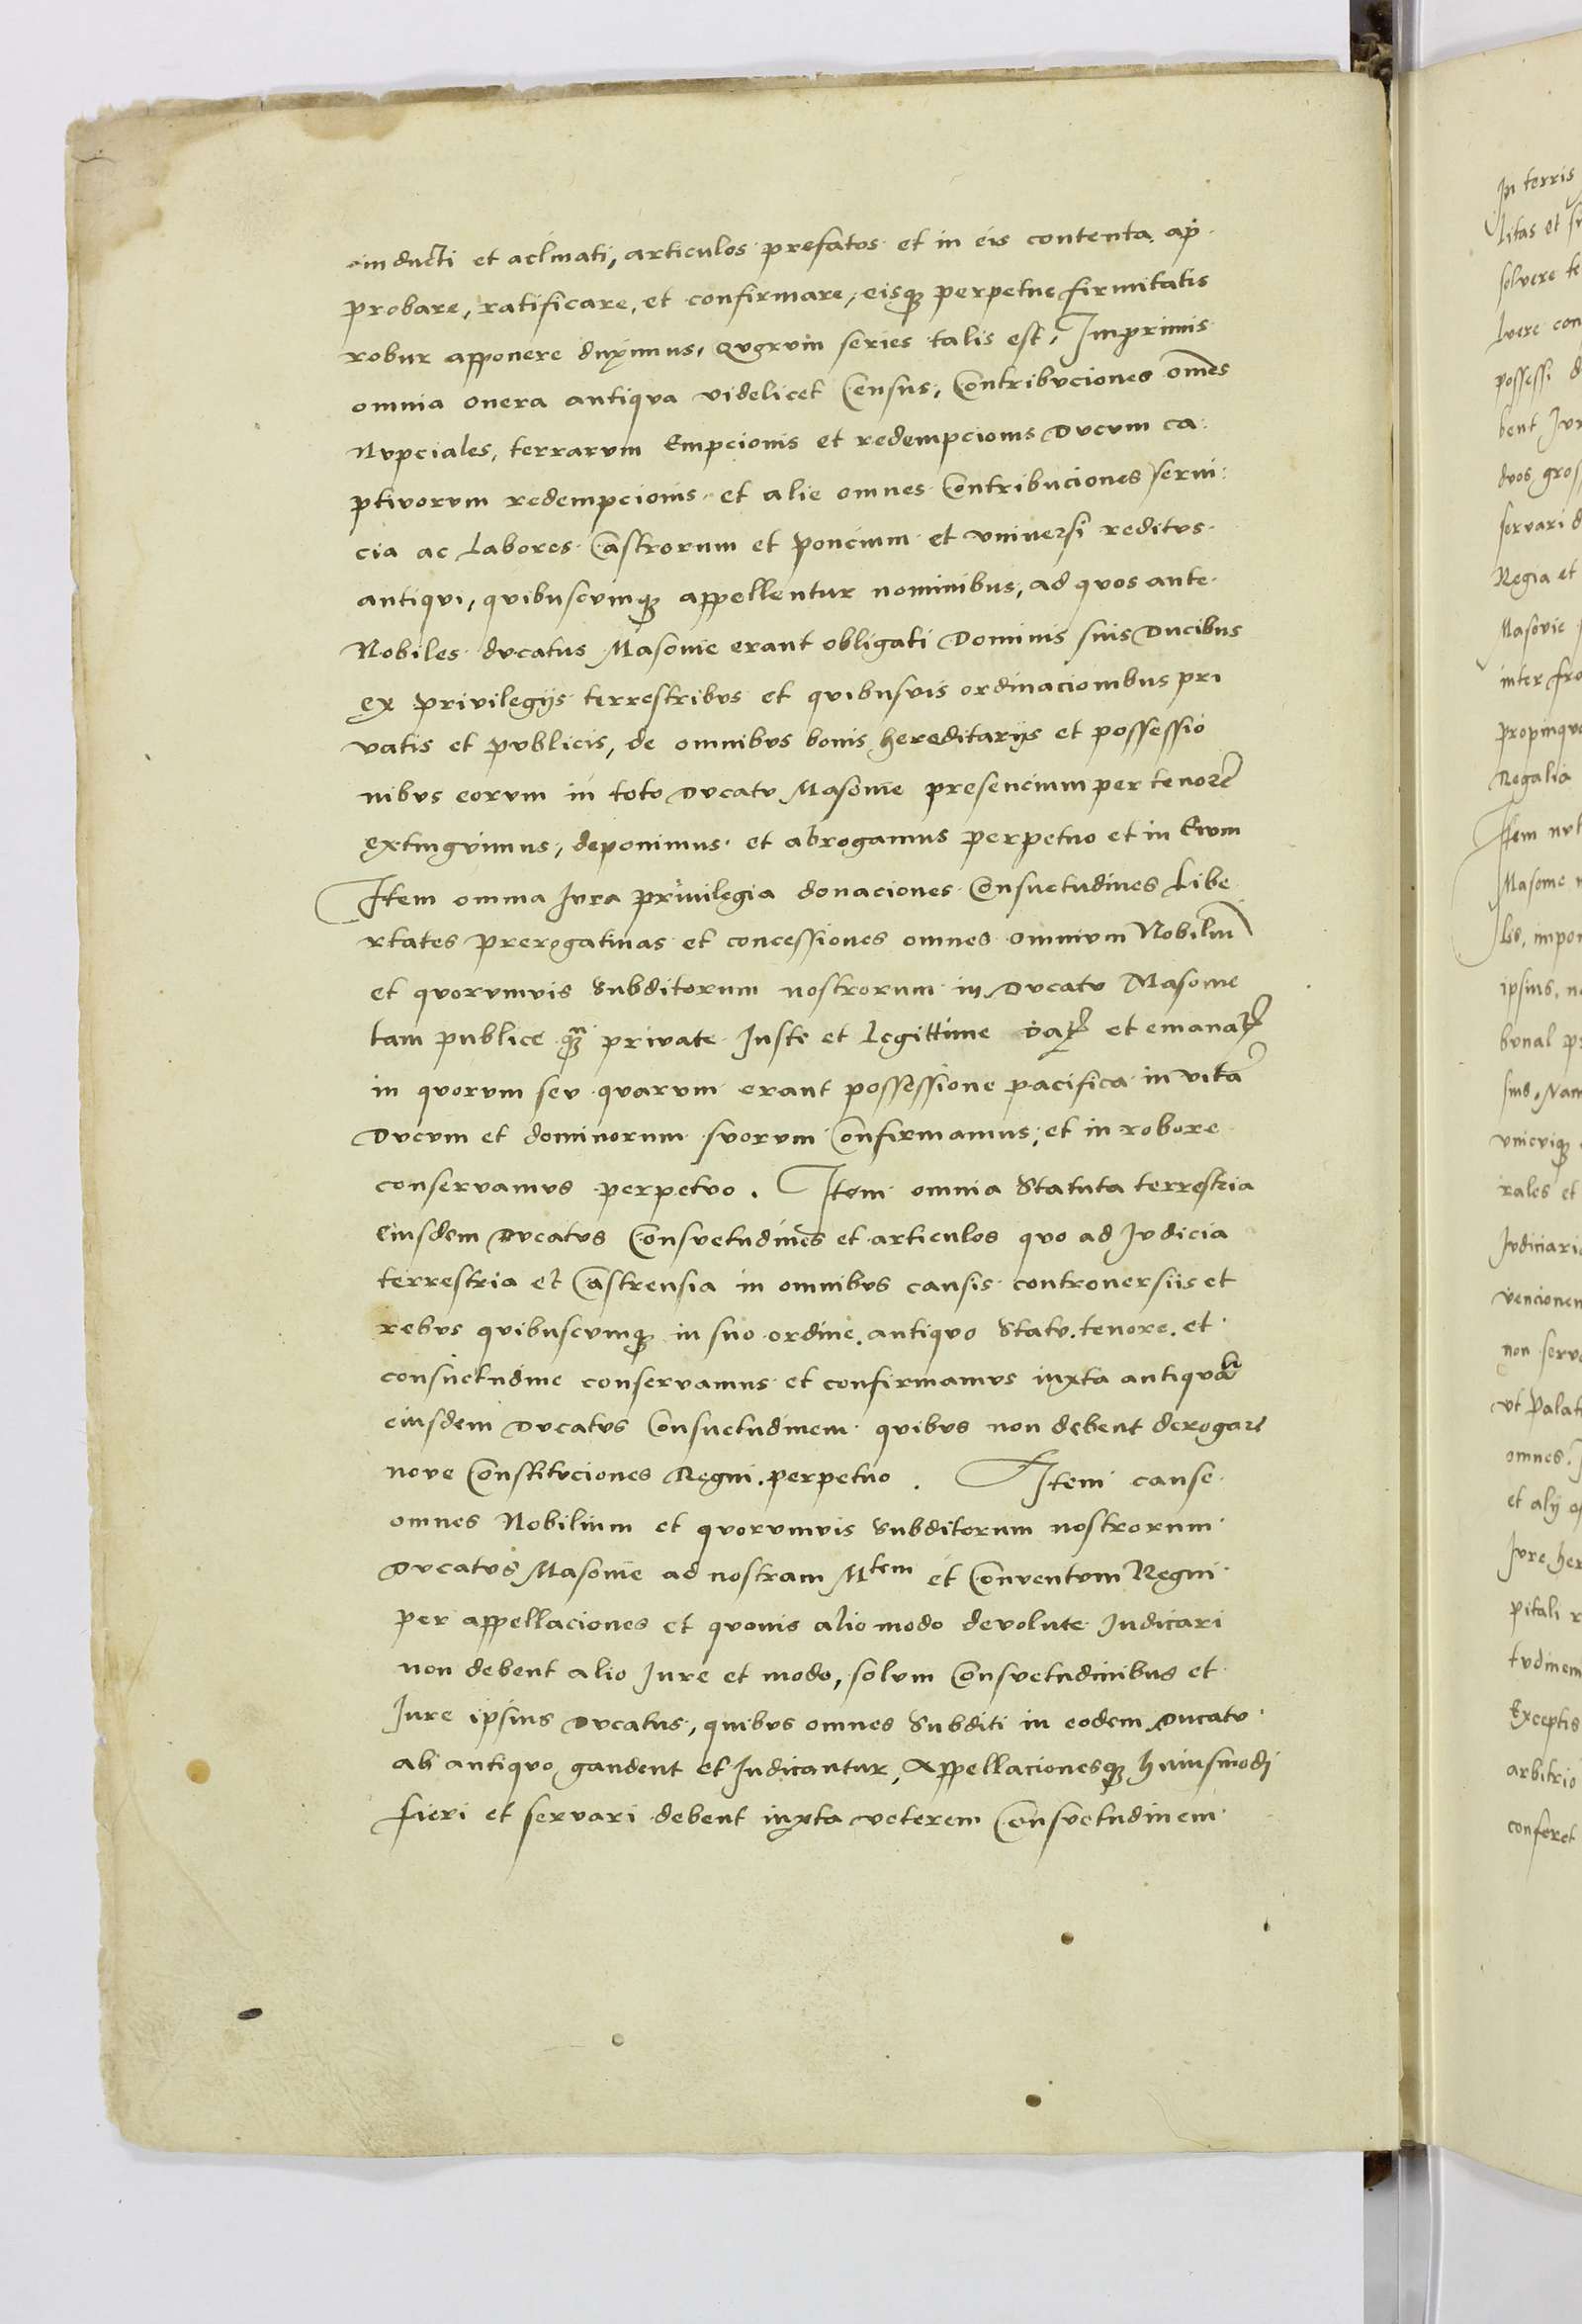 inducti et aclinati, articulos prefatos et in eis contenta ap
probare, ratificare, et confirmare, eisq; perpetue firmitatis
robur apponere duximus, Quorum series talis est, Imprimis
omnia onera antiqua videlicet Census, Contribuciones om̄es
Nupciales, terrarum Empcionis et redempcionis Ducum ca:
ptivorum redempcionis et alie omnes Contribuciones servi:
cia ac Labores Castrorum et poncium et universi reditus
antiqui, quibuscumq; appellentur nominibus, ad quos ante
Nobiles ducatus Masovie erant obligati Dominis suis Ducibus
ex privilegijs terrestribus et quibusvis ordinacionibus pri
vatis et publicis, de omnibus bonis hereditarijs et possessio
nibus eorum in toto Ducatu Masovie presencium per tenorē
extinguimus, deponimus et abrogamus perpetuo et in Evum
Item omnia Iura privilegia donaciones Consuetudines Libe
rtates prerogativas et concessiones omnes omnium Nobiliū
et quorumvis Subditorum nostrorum in Ducatu Masovie
tam publice q̄ private Iuste et Legittime daꝝ et emanaꝝ
in quorum seu quarum erant possessione pacifica in vita
Ducum et dominorum suorum Confirmamus, et in robore
conservamus perpetuo. Item omnia Statuta terrestria
Eiusdem Ducatus Consuetudines et articulos quo ad Iudicia
terrestria et Castrensia in omnibus causis controversiis et
rebus quibuscumq; in suo ordine. antiquo Statu. tenore. et
consuetudine conservamus et confirmamus iuxta antiquā
eiusdem Ducatus Consuetudinem quibus non debent derogare
nove Constituciones Regni. perpetuo. Item cause
omnes Nobilium et quorumvis subditorum nostrorum
Ducatus Masovie ad nostram Mtem et Conventum Regni
per appellaciones et quovis alio modo devolute Iudicari
non debent alio Iure et modo, solum Consuetudinibus et
Iure ipsius Ducatus, quibus omnes Subditi in eodem Ducatu
ab antiquo gaudent et Iudicantur, Appellacionesq; huiusmodi
fieri et servari debent iuxta veterem Consuetudinem
In terris
litas et
solvere
luere con
possessi
bent Iur
duos gros
servari
Regia et
Masovie
inter fra
propinquo
Regalia
Item nul
Masovie
lis, impon
ipsius,
bunal
suis, Nam
unicuiq;
rales et
Iudiciari
vencionem
non serv
ut Palat
omnes.
et alij
Iure her
pitali
tudinem
Exceptis
arbitrio
conferet